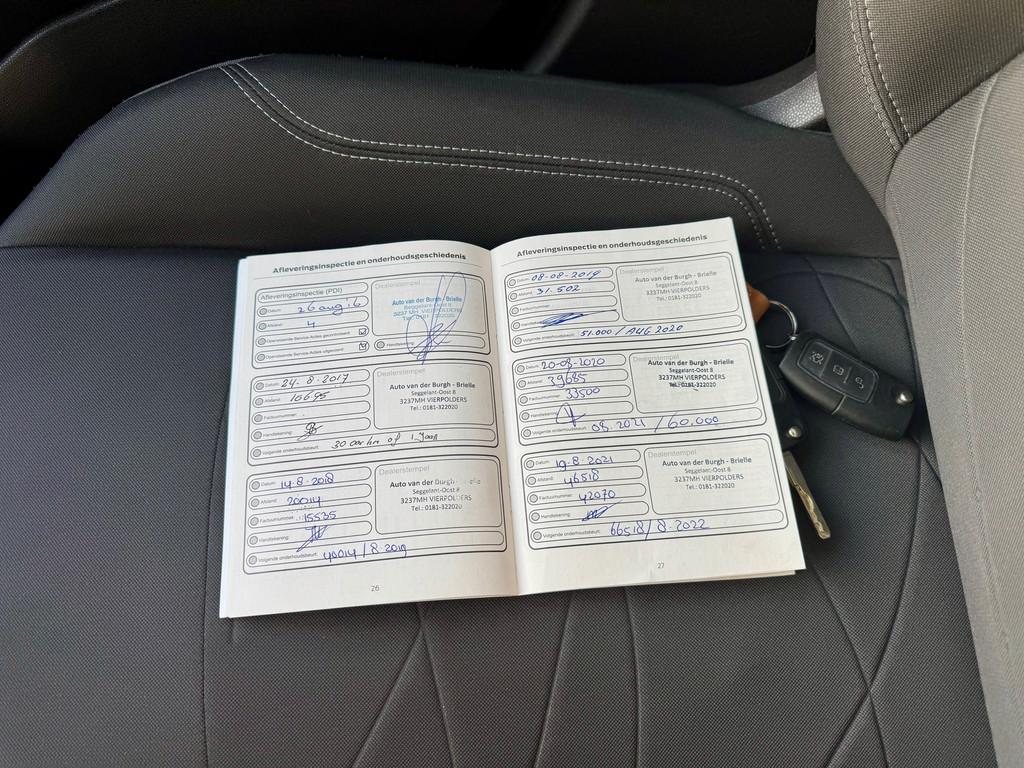 Afleveringsinspectie en onderhoudsgeschiedenis
Afleveringsinspectie (PDI)
Datum: 26 aug 16
Afstand: 4
Openstaande Service Acties gecontroleerd:
Openstaande Service Acties uitgevoerd:
Dealerstempel
Auto van der Burgh - Brielle
Seggelant-Oost 8
3237 MH VIERPOLDERS
Tel.: 0181 - 322020
Handtekening:
Datum: 24-8-2017
Afstand: 10695
Factuurnummer:
Handtekening:
Volgende onderhoudsbeurt: 30 000 km of 1 Jaar
Dealerstempel
Auto van der Burgh - Brielle
Seggelant-Oost 8
3237MH VIERPOLDERS
Tel.: 0181-322020
Datum: 14-8-2018
Afstand: 20014
Factuurnummer: 15535
Handtekening:
Volgende onderhoudsbeurt: 40014 / 8-2019
Dealerstempel
Auto van der Burgh - Brielle
Seggelant-Oost 8
3237MH VIERPOLDERS
Tel.: 0181-322020
26
Afleveringsinspectie en onderhoudsgeschiedenis
Datum: 08-08-2019
Afstand: 31.502
Factuurnummer:
Handtekening:
Volgende onderhoudsbeurt: 51.000 / AUG 2020
Dealerstempel
Auto van der Burgh - Brielle
Seggelant-Oost 8
3237MH VIERPOLDERS
Tel.: 0181-322020
Datum: 20-08-2020
Afstand: 39685
Factuurnummer: 33500
Handtekening:
Volgende onderhoudsbeurt: 08-2021 / 60.000
Dealerstempel
Auto van der Burgh - Brielle
Seggelant-Oost 8
3237MH VIERPOLDERS
Tel.: 0181-322020
Datum: 19-8-2021
Afstand: 46518
Factuurnummer: 42070
Handtekening:
Volgende onderhoudsbeurt: 66518 / 8-2022
Dealerstempel
Auto van der Burgh - Brielle
Seggelant-Oost 8
3237MH VIERPOLDERS
Tel.: 0181-322020
27